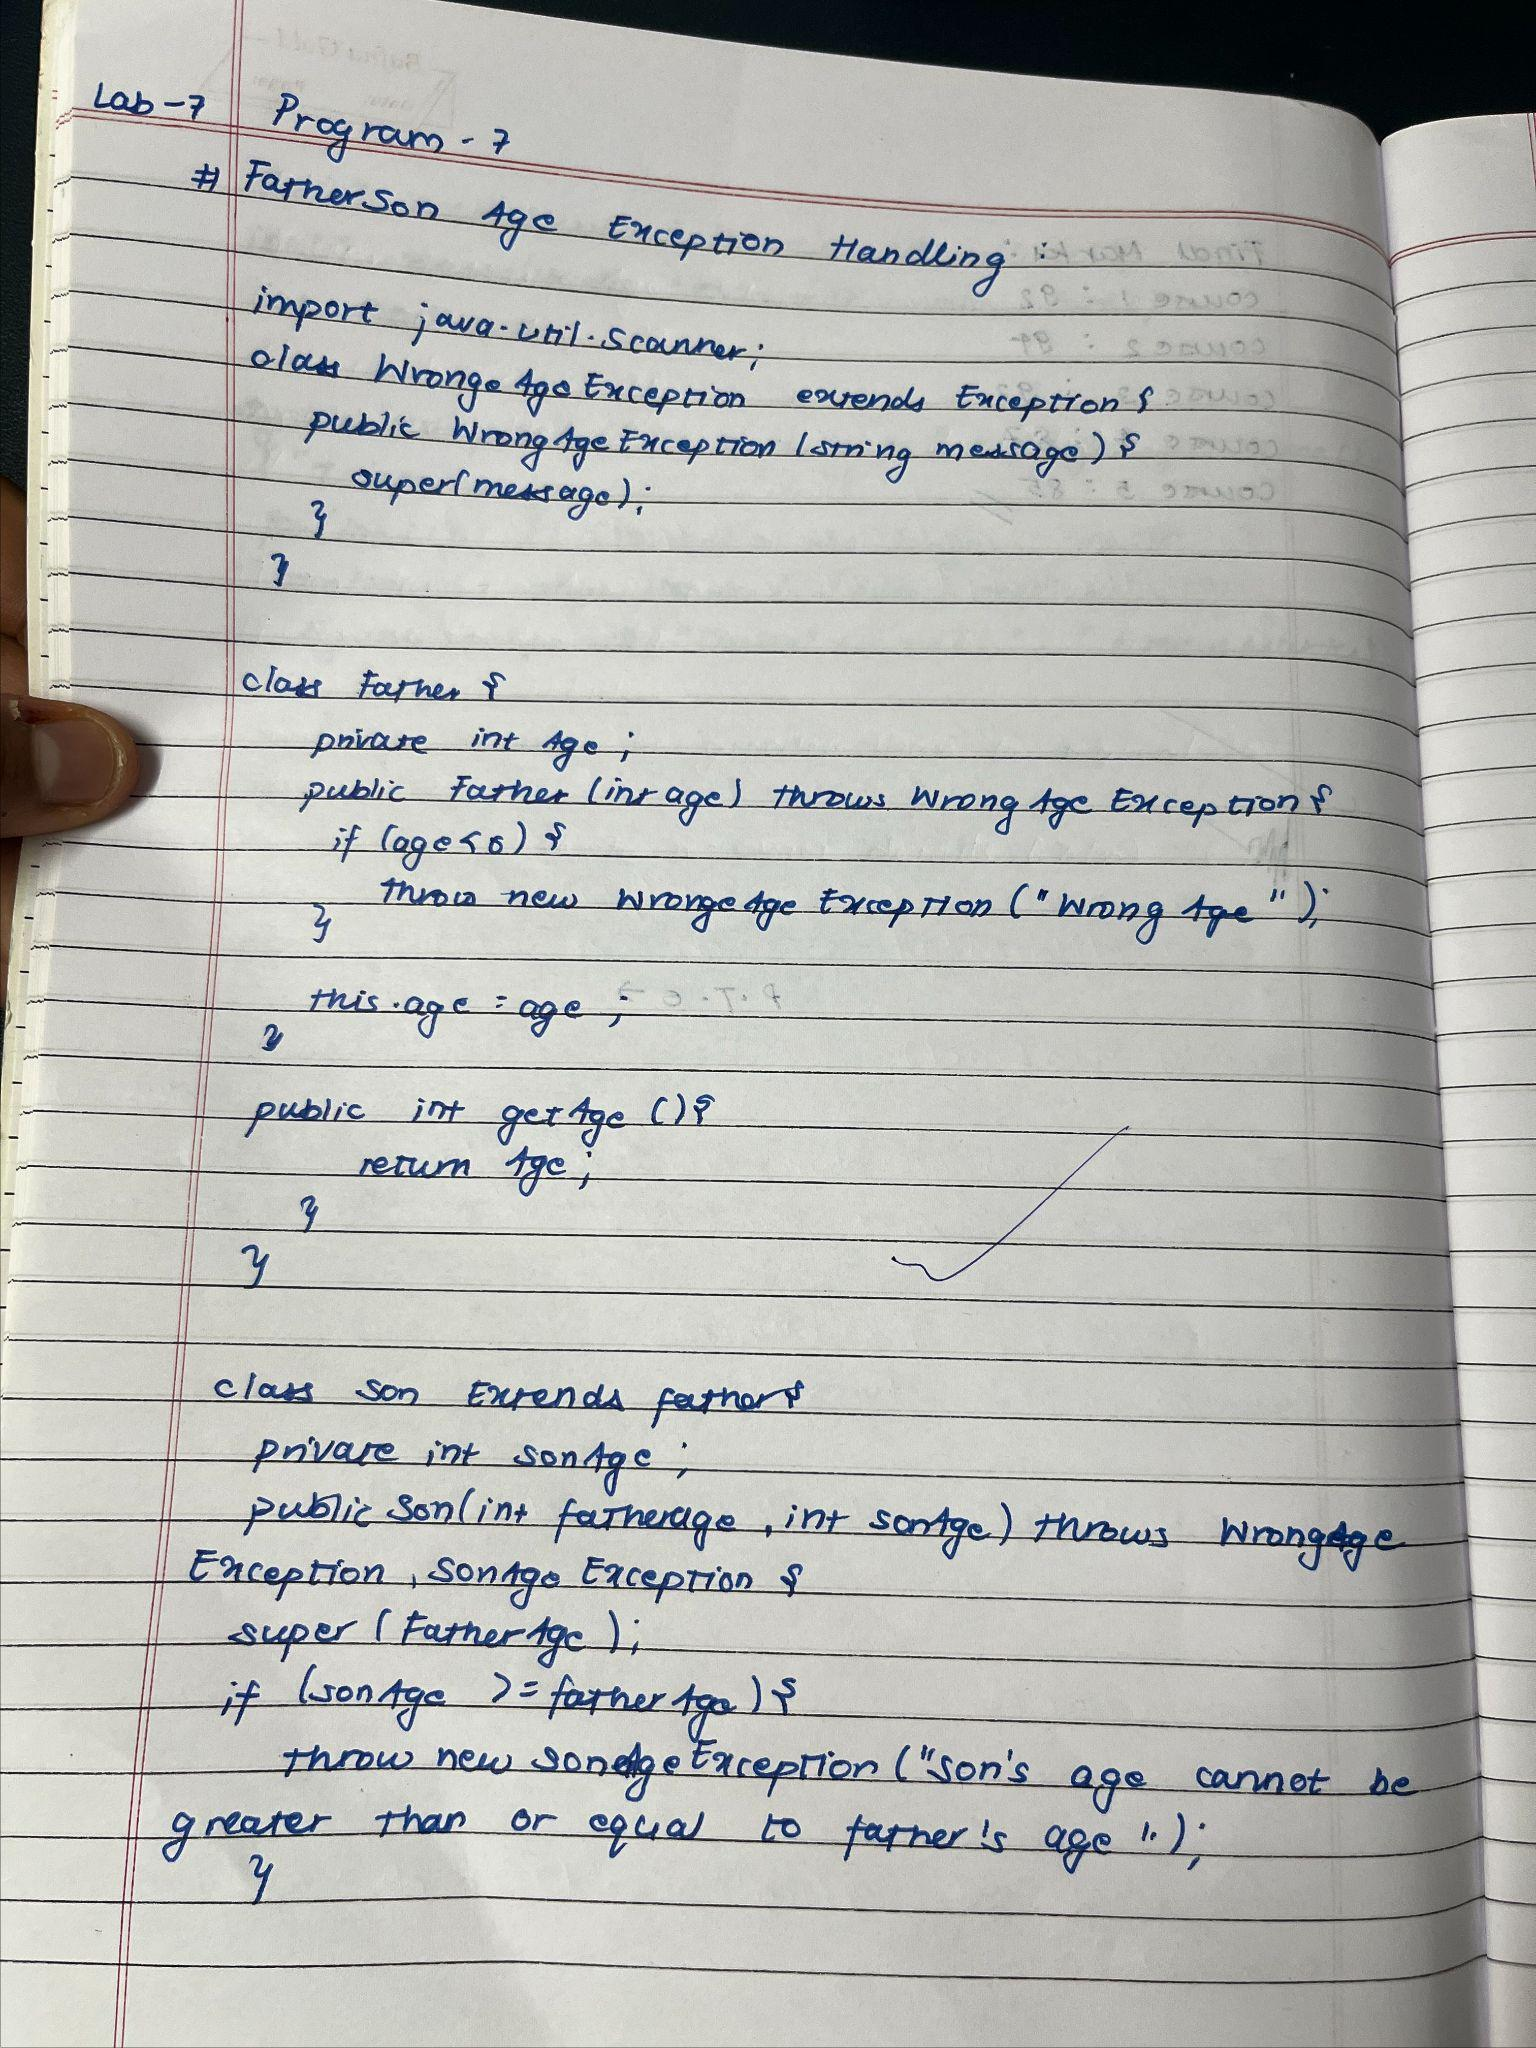 Lab-7 Program-7
# FatherSon Age Exception Handling :
import java.util.Scanner;
class WrongeAgeException extends Exception{
public WrongAgeException (string message) {
super(message);
}
}
class Father {
private int Age ;
public Father (int age) throws WrongAge Exception {
if (age<0) {
throw new WrongeAge Exception ("Wrong Age");
}
this.age = age ;
}
public int getAge () {
return Age;
}
}
class son Extends father{
private int sonAge ;
public Son(int fatherage, int sonAge) throws WrongAge
Exception, SonAge Exception {
super (FatherAge);
if (sonAge >= fatherAge) {
throw new SonAgeException ("son's age cannot be
greater than or equal to father's age".);
}